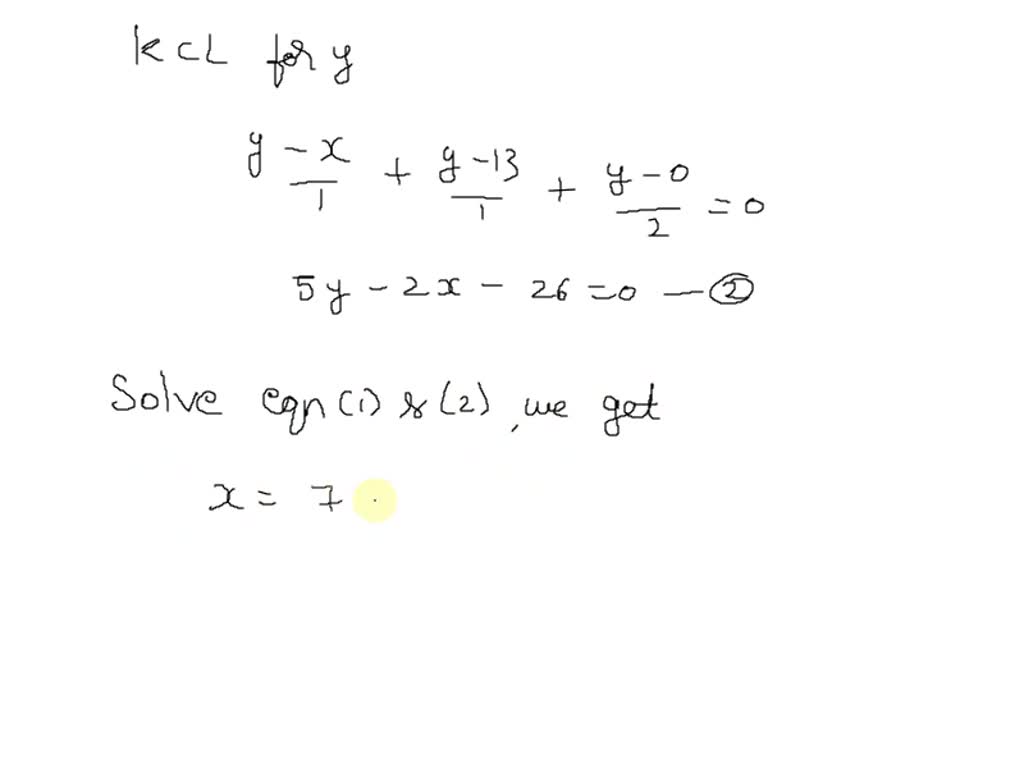 KCL for y
y - x / 1 + y - 13 / 1 + y - 0 / 2 = 0
5y - 2x - 26 = 0 — ②
Solve eqn (1) & (2), we get
x = 7